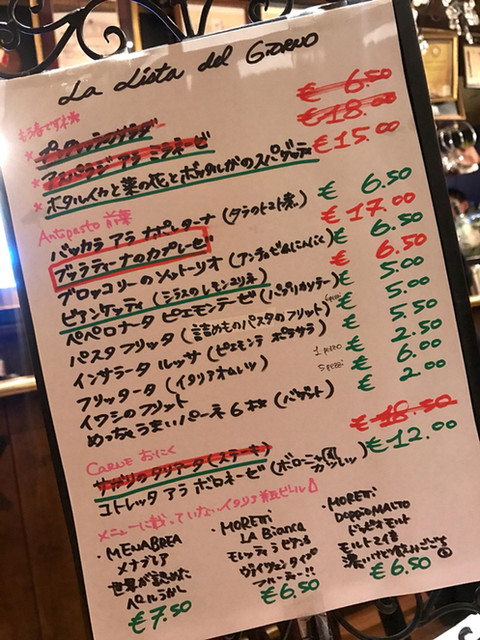 La Lista del Giorno
もう春ですね
アスパラジ アラ ミラネーゼ € 18.00
* ホタルイカと菜の花とボッタルガのスパゲッティ € 15.00
Antipasto 前菜
バッカラ アラ ナポレターナ (タラのトマト煮) € 6.50
ブッラティーナのカプレーゼ € 17.00
ブロッコリーのソットーリオ (アンチョビ&にんにく) € 6.50
ビアンケッティ (シラスのレモンユリーネ) € 6.50
ペペロナータ ピエモンテーゼ (パプリカソテー) € 5.00
パスタ フリッタ (詰めものパスタのフリット) € 5.00
インサラータ ルッサ (ピエモンテ ポテサラ) € 5.50
フリッタータ (イタリアオムレツ) 1 pezzo € 2.50
イワシのフリット 5 pezzi € 6.00
めっちゃうまいパーネ 6本 (バゲット) € 2.00
Carne おにく
サガリのタリアータ (ステーキ) € 18.50
コトレッタ アラ ボロネーゼ (ボローニャ風カツレツ) € 12.00
メニューに載っていないイタリア瓶ビール
・MENABREA
メナブレア
世界が認めた
€ 7.50
・MORETTI
LA Bianca
モレッティ ラ ビアンカ
ヴァイツェンタイプ
フルーティー!!
€ 6.50
・MORETTI
Doppio MALTO
ドッピオ モルト
モルト2倍
濃いけど飲みごごち
€ 6.50